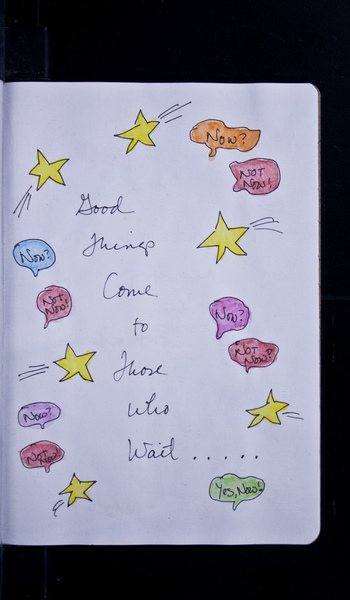 Now?
NOT
NOW!
Good
Things
Now?
Come
NOT
NOW!
Now?
to
NOT
NOW!
Those
Now?
who
NOT
NOW!
Wait.....
Yes, Now!